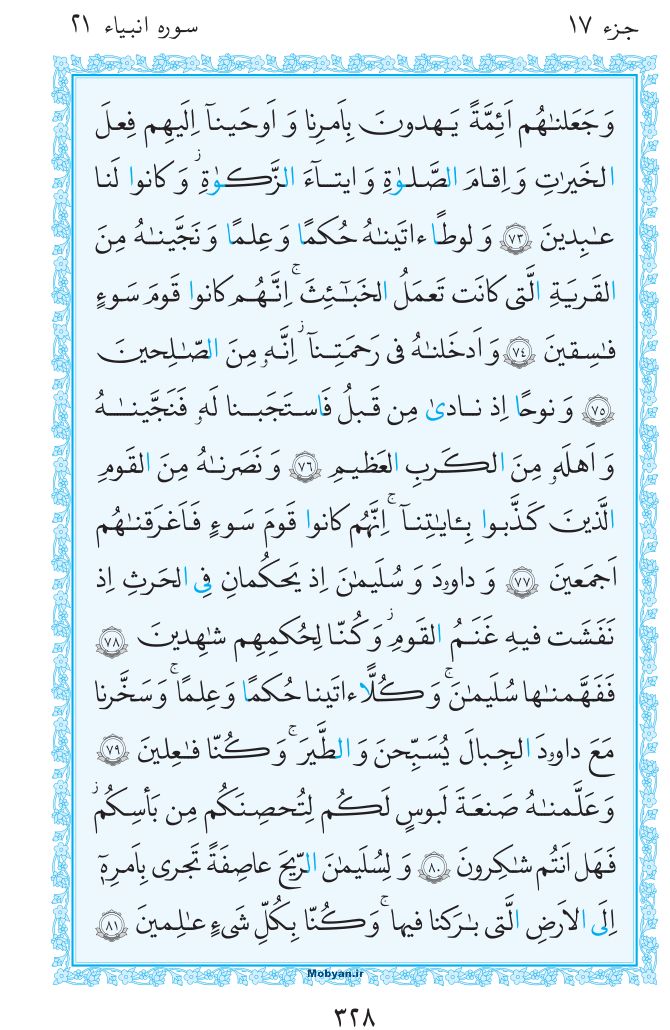 جزء ١٧
سوره انبیاء ٢١
وَ جَعَلنـٰهُم اَئِمَّةً یَـهدونَ بِاَمرِنا وَ اَوحَینـآ اِلَیهِم فِعلَ
الخَیرٰتِ وَ اِقـامَ الصَّلـوٰةِ وَ ایتـآءَ الزَّکـوٰةِ ۖ وَ کانوا لَنا
عـٰبِدینَ ﴿٧٣﴾ وَ لوطًا ءاتَینـٰهُ حُکمًا وَ عِلمًا وَ نَجَّینـٰهُ مِنَ
القَریَةِ الَّتی کانَت تَعمَلُ الخَبـٰٓئِثَ ۚ اِنَّـهُـم کانوا قَومَ سَوءٍ
فـٰسِقینَ ﴿٧٤﴾ وَ اَدخَلنـٰهُ فی رَحمَتِـنآ ۖ اِنَّه‌و مِنَ الصّـٰلِحینَ
﴿٧٥﴾ وَ نوحًا اِذ نـادیٰ مِن قَـبلُ فَاستَجَبـنا لَه‌و فَنَجَّینـٰهُ
وَ اَهلَه‌و مِنَ الکَـربِ العَظیـمِ ﴿٧٦﴾ وَ نَصَرنـٰهُ مِنَ القَومِ
الَّذینَ کَذَّبـوا بِـٔایـٰتِنـآ ۚ اِنَّهُم کانوا قَومَ سَوءٍ فَـاَغرَقنـٰهُم
اَجمَعینَ ﴿٧٧﴾ وَ داوو‌دَ وَ سُلَیمـٰنَ اِذ یَحکُمانِ فِی الحَرثِ اِذ
نَفَشَت فیهِ غَنَـمُ القَومِ ۖ وَ کُنّـا لِحُکمِهِم شـٰهِدینَ ﴿٧٨﴾
فَفَهَّمنـٰها سُلَیمـٰنَ ۚ وَ کُـلًّا ءاتَینا حُکمًا وَ عِلمًا ۚ وَ سَخَّرنا
مَعَ داوو‌دَ الجِبالَ یُسَبِّحنَ وَ الطَّیرَ ۚ وَ کُنّا فـٰعِلینَ ﴿٧٩﴾
وَ عَلَّمنـٰهُ صَنعَةَ لَبوسٍ لَکُم لِتُحصِنَکُم مِن بَأسِکُم ۖ
فَهَل اَنتُم شـٰکِرونَ ﴿٨٠﴾ وَ لِسُلَیمـٰنَ الرّیحَ عاصِفَةً تَجری بِاَمرِهٓ
اِلَی الاَرضِ الَّتی بـٰرَکنا فیها ۚ وَ کُنّا بِکُلِّ شَیءٍ عـٰلِمینَ ﴿٨١﴾
Mobyan.ir
٣٢٨